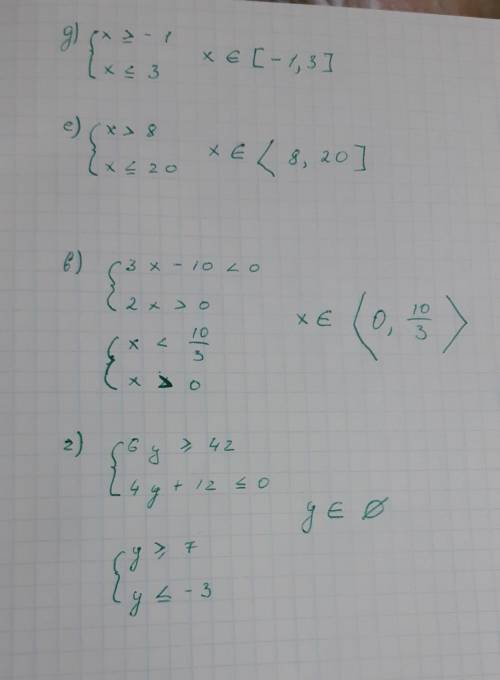 д) { x ≥ -1
x ≤ 3 x ∈ [-1, 3]
е) { x > 8
x ≤ 20 x ∈ ⟨8, 20]
в) { 3x - 10 < 0
2x > 0
{ x < 10/3
x > 0 x ∈ ⟨0, 10/3⟩
г) { 6y ≥ 42
4y + 12 ≤ 0
y ∈ ∅
{ y ≥ 7
y ≤ -3